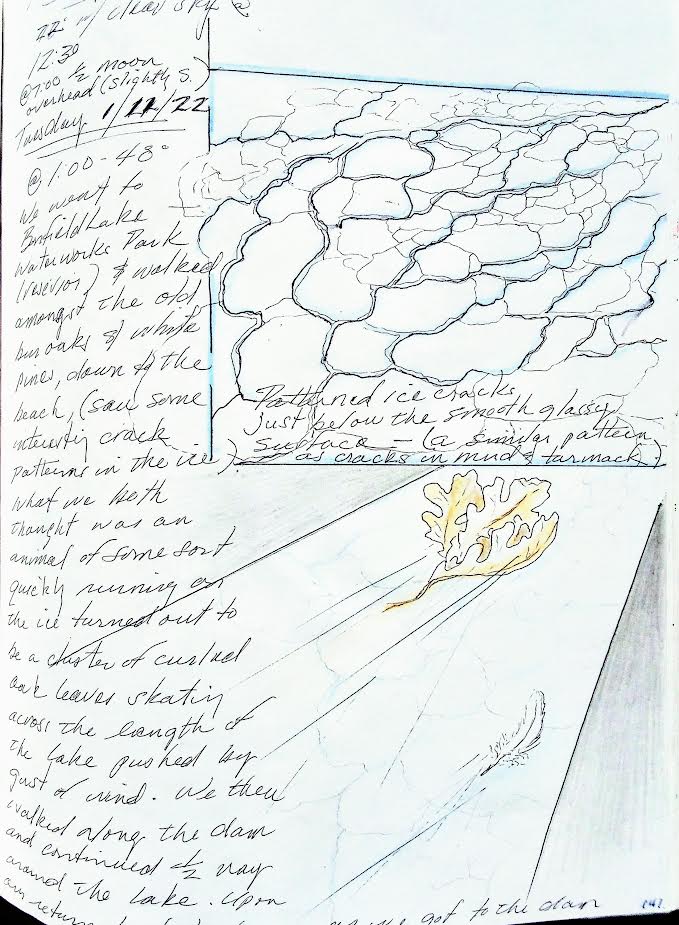 22° w/ clear sky @
12:30
@7:00 ½ moon
overhead (slightly S.)
Tuesday 1/11/22
@ 1:00 - 48°
we went to
Lake
Waterworks Park
(reservoir) & walked
amongst the old
bur oaks & white
pines, down to the
beach, (saw some
interesting crack
patterns in the ice)
what we both
thought was an
animal of some sort
quickly running on
the ice turned out to
be a cluster of curled
oak leaves skating
across the length of
the lake pushed by
gust of wind. We then
walked along the dam
and continued ½ way
around the lake. Upon
our return
we got to the dam
Patterned ice cracks
just below the smooth glassy
surface - (a similar pattern
as cracks in mud & tarmack)